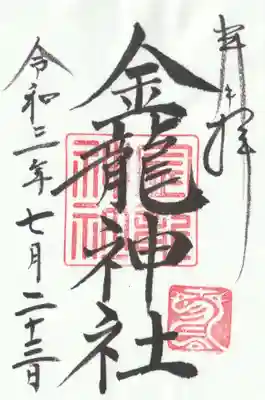 奉拝
金龍神社
令和二年七月二十三日